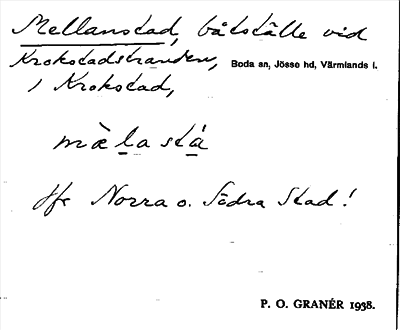 Mellanstad, båtställe vid
Krokstadstranden, Boda sn, Jösse hd, Värmlands l.
i Krokstad,
mæ̀la stá
Jfr Norra o. Södra Stad!
P. O. GRANÉR 1938.